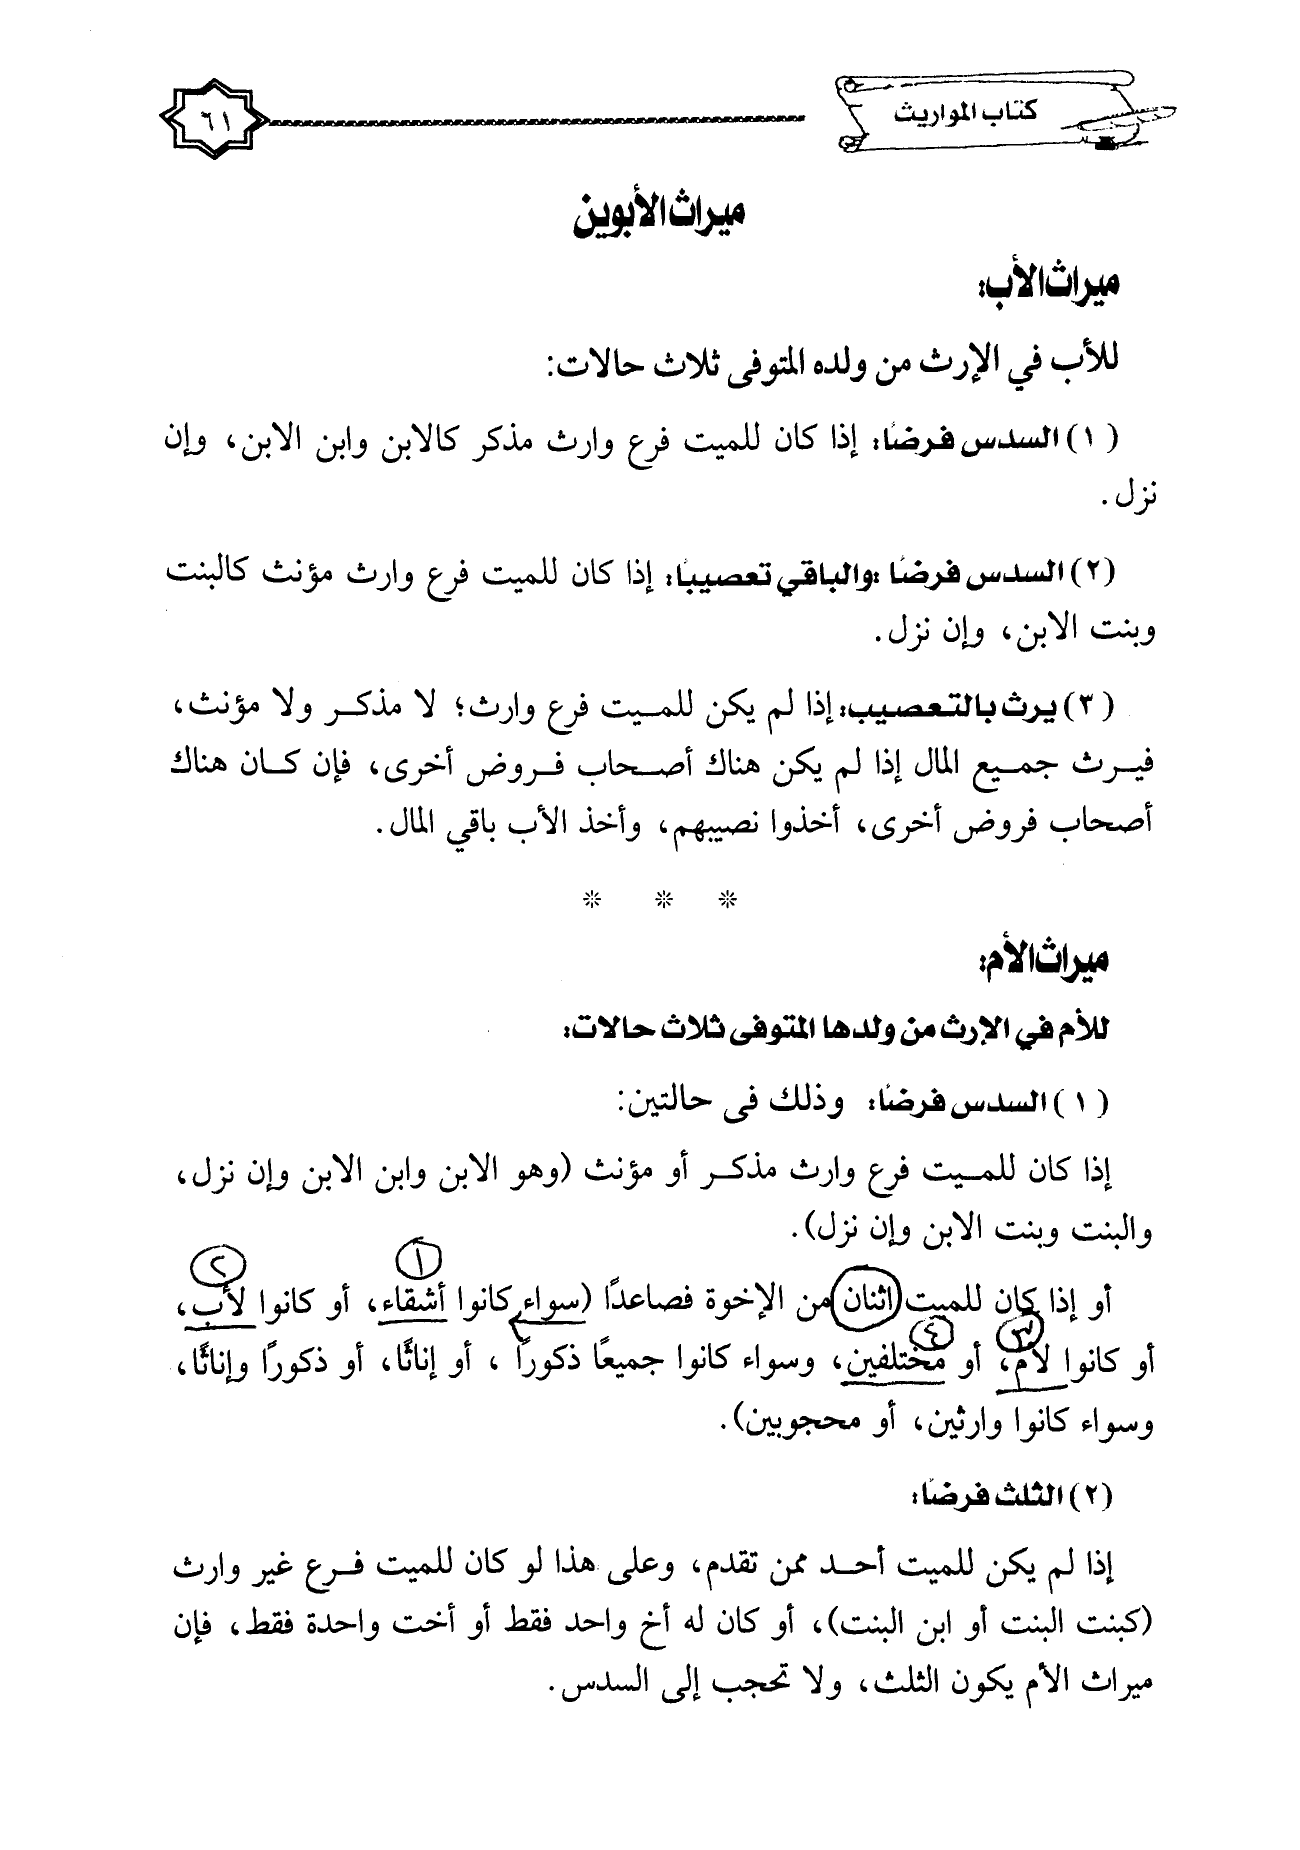 كتاب المواريث
٦١
ميراث الأبوين
ميراث الأب:
للأب في الإرث من ولده المتوفى ثلاث حالات:
(١) السدس فرضًا: إذا كان للميت فرع وارث مذكر كالابن وابن الابن، وإن
نزل.
(٢) السدس فرضًا :والباقي تعصيبًا: إذا كان للميت فرع وارث مؤنث كالبنت
وبنت الابن، وإن نزل.
(٣) يرث بالتعصيب: إذا لم يكن للميت فرع وارث؛ لا مذكر ولا مؤنث،
فيرث جميع المال إذا لم يكن هناك أصحاب فروض أخرى، فإن كان هناك
أصحاب فروض أخرى، أخذوا نصيبهم، وأخذ الأب باقي المال.
* * *
ميراث الأم:
للأم في الإرث من ولدها المتوفى ثلاث حالات:
(١) السدس فرضًا: وذلك فى حالتين:
إذا كان للميت فرع وارث مذكر أو مؤنث (وهو الابن وابن الابن وإن نزل،
والبنت وبنت الابن وإن نزل).
١ ٢
أو إذا كان للميت اثنان من الإخوة فصاعدًا (سواء كانوا أشقاء، أو كانوا لأب،
٣ ٤
أو كانوا لأم، أو مختلفين، وسواء كانوا جميعًا ذكورًا ، أو إناثًا، أو ذكورًا وإناثًا،
وسواء كانوا وارثين، أو محجوبين).
(٢) الثلث فرضًا:
إذا لم يكن للميت أحد ممن تقدم، وعلى هذا لو كان للميت فرع غير وارث
(كبنت البنت أو ابن البنت)، أو كان له أخ واحد فقط أو أخت واحدة فقط، فإن
ميراث الأم يكون الثلث، ولا تحجب إلى السدس.